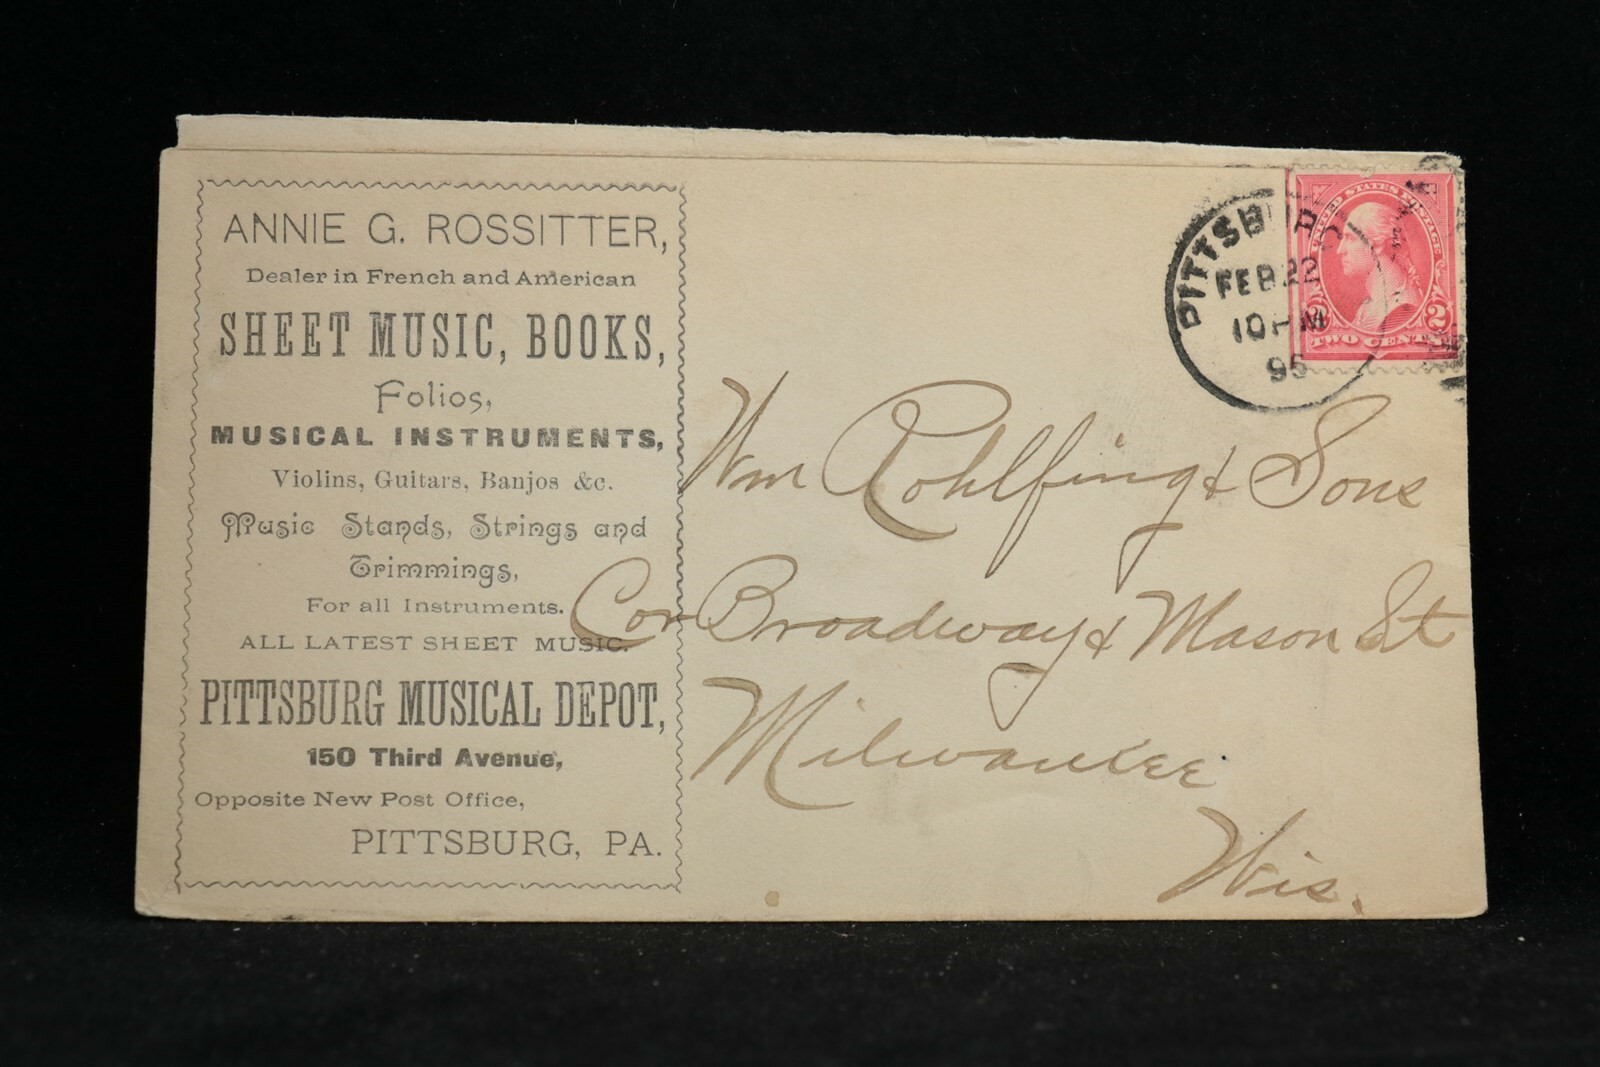 ANNIE G. ROSSITTER,
Dealer in French and American
SHEET MUSIC, BOOKS,
Folios,
MUSICAL INSTRUMENTS,
Violins, Guitars, Banjos &c.
Music Stands, Strings and
Trimmings,
For all Instruments.
ALL LATEST SHEET MUSIC.
PITTSBURG MUSICAL DEPOT,
150 Third Avenue,
Opposite New Post Office,
PITTSBURG, PA.
PITTSBURG
FEB 22
10 PM
95
UNITED STATES POSTAGE
2 2
TWO CENTS
Wm Rohlfing & Sons
Cor Broadway & Mason St
Milwaukee
Wis.